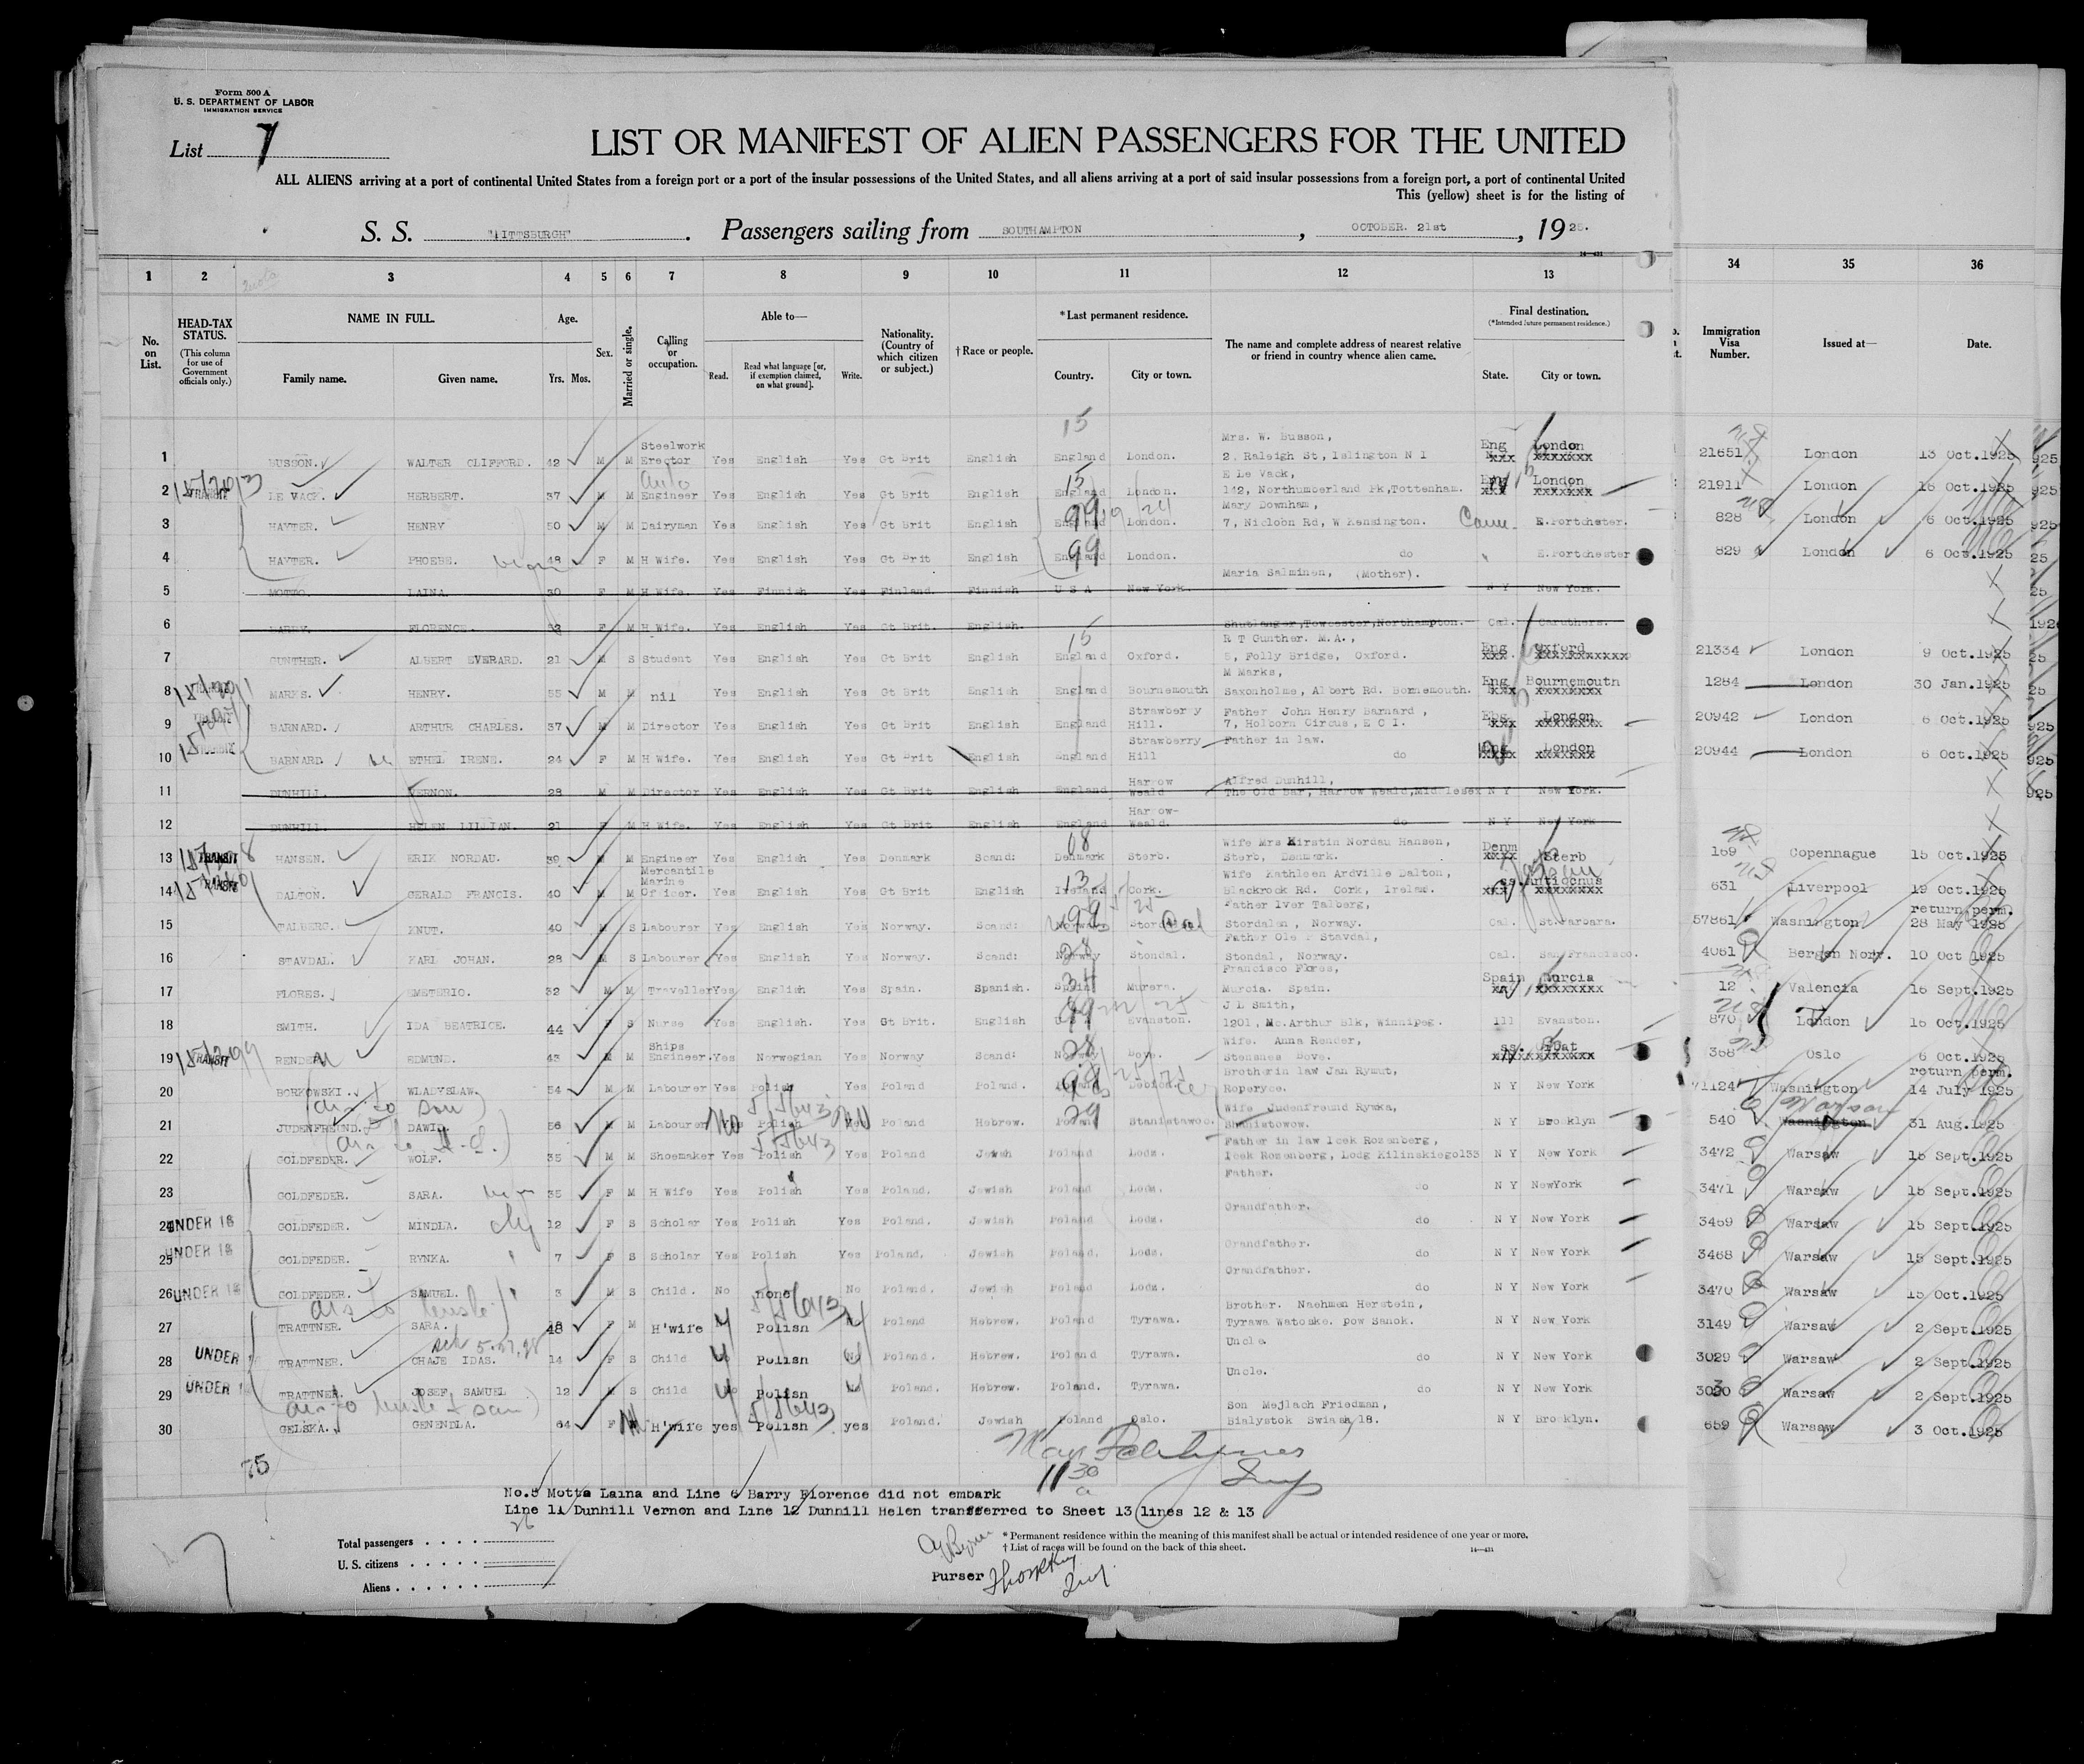 Form 500 A
U. S. DEPARTMENT OF LABOR
IMMIGRATION SERVICE
List 7
LIST OR MANIFEST OF ALIEN PASSENGERS FOR THE UNITED
ALL ALIENS arriving at a port of continental United States from a foreign port or a port of the insular possessions of the United States, and all aliens arriving at a port of said insular possessions from a foreign port, a port of continental United
This (yellow) sheet is for the listing of
S. S. "PITTSBURGH" . Passengers sailing from SOUTHAMPTON , OCTOBER. 21st , 1925.
1 2 3 4 5 6 7 8 9 10 11 12 13 34 35 36
No. on List. HEAD-TAX STATUS. (This column for use of Government officials only.) NAME IN FULL. Family name. Given name. Age. Yrs. Mos. Sex. Married or single. Calling or occupation. Able to— Read. Read what language [or, if exemption claimed, on what ground]. Write. Nationality. (Country of which citizen or subject.) † Race or people. *Last permanent residence. Country. City or town. The name and complete address of nearest relative or friend in country whence alien came. Final destination. (*Intended future permanent residence.) State. City or town. Immigration Visa Number. Issued at— Date.
1 BUSSON. WALTER CLIFFORD. 42 M M Steelwork Erector Yes English Yes Gt Brit English England London. Mrs. W. Busson, 2, Raleigh St, Islington N I Eng London 21651 London 13 Oct.1925
2 TRANSIT LE VACK. HERBERT. 37 M M Engineer Yes English Yes Gt Brit English England London. E Le Vack, 142, Northumberland Pk,Tottenham. Eng London 21911 London 16 Oct.1925
3 HAYTER. HENRY 50 M M Dairyman Yes English Yes Gt Brit English England London. Mary Downham, 7, Niclobn Rd, W Kensington. Conn. E.Portchester. 828 London 6 Oct.1925
4 HAYTER. PHOEBE. 48 F M H Wife. Yes English Yes Gt Brit English England London. do " E.Portchester 829 London 6 Oct.1925
5 MOTTO. LAINA. 30 F M H Wife. Yes Finnish Yes Finland. Finnish U S A New York. Maria Salminen, (Mother). N Y New York.
6 BARRY. FLORENCE. F M H Wife. Yes English Yes Gt Brit. English. Shutlanger,Towcester,Northampton. Cal. Caruthers.
7 GUNTHER. ALBERT EVERARD. 21 M S Student Yes English Yes Gt Brit English England Oxford. R T Gunther. M.A., 5, Folly Bridge, Oxford. Eng Oxford 21334 London 9 Oct.1925
8 MARKS. HENRY. 55 M M nil Yes English Yes Gt Brit English England Bournemouth M Marks, Saxonholme, Albert Rd. Bornemouth. Eng Bournemouth 1284 London 30 Jan.1925
9 BARNARD. ARTHUR CHARLES. 37 M M Director Yes English Yes Gt Brit English England Strawberry Hill. Father John Henry Barnard, 7, Holborn Circus, E C I. Eng London 20942 London 6 Oct.1925
10 BARNARD ETHEL IRENE. 24 F M H Wife. Yes English Yes Gt Brit English England Strawberry Hill Father in law. do Eng London 20944 London 6 Oct.1925
11 DUNHILL. VERNON. 28 M M Director Yes English Yes Gt Brit English England Harrow Weald Alfred Dunhill, The Old Bar, Harrow Weald,Middlesex N Y New York.
12 DUNHILL. HELEN LILIAN. 21 F M H Wife. Yes English Yes Gt Brit English England Harrow- Weald. do N Y New York
13 TRANSIT HANSEN. ERIK NORDAU. 39 M M Engineer Yes English Yes Denmark Scand: Denmark Sterb. Wife Mrs Kirstin Nordau Hansen, Sterb, Denmark. Denm Sterb 169 Copennague 15 Oct.1925
14 TRANSIT DALTON. GERALD FRANCIS. 40 M M Mercantile Marine Officer. Yes English Yes Gt Brit English Ireland Cork. Wife Kathleen Ardville Dalton, Blackrock Rd. Cork, Ireland. ss. Antiochus 631 Liverpool 19 Oct.1925
15 TALBERG. KNUT. 40 M S Labourer Yes English Yes Norway. Scand: Norway Stordalen Father Iver Talberg, Stordalen, Norway. Cal. St.Barbara. 57861 Washington return perm. 28 May 1925
16 STAVDAL. KARL JOHAN. 28 M S Labourer Yes English Yes Norway. Scand: Norway Stondal. Father Ole P Stavdal, Stondal, Norway. Cal. San Francisco. 4061 Bergen Norw. 10 Oct 1925
17 FLORES. EMETERIO. 32 M M Traveller Yes English Yes Spain. Spanish. Spain Murcra. Francisco Flores, Murcia. Spain. Spain Murcia 12 Valencia 16 Sept.1925
18 SMITH. IDA BEATRICE. 44 F S Nurse Yes English. Yes Gt Brit. English Evanston. J L Smith, 1201, Mc.Arthur Blk, Winnipeg. Ill Evanston. 870 London 15 Oct.1925
19 TRANSIT RENDER EDMUND. 43 M M Ships Engineer. Yes Norwegian Yes Norway Scand: Norway Bove. Wife. Anna Render, Stensnes Bove. 368 Oslo 6 Oct.1925
20 BORKOWSKI. WLADYSLAW. 54 M M Labourer Yes Polish Yes Poland Poland. Brotherin law Jan Rymut, Roperyce. N Y New York 71124 Washington return perm. 14 July 1925
21 JUDENFREUND. DAWID. 56 M M Labourer No Polish No Poland Hebrew. Poland Stanislawoc. Wife Judenfreund Rywka, Shanistowow. N Y Brooklyn 540 Washington 31 Aug.1925
22 GOLDFEDER. WOLF. 35 M M Shoemaker Yes Polish Yes Poland Jewish Poland Lodz. Father in law Icek Rozenberg, Icek Rosenberg, Lodg Kilinskiego133 N Y New York 3472 Warsaw 15 Sept.1925
23 GOLDFEDER. SARA. 35 F M H Wife Yes Polish Yes Poland. Jewish Poland Lodz. Father. do N Y NewYork 3471 Warsaw 15 Sept.1925
24 UNDER 16 GOLDFEDER. MINDLA. 12 F S Scholar Yes Polish Yes Poland. Jewish Poland Lodz. Grandfather. do N Y New York 3469 Warsaw 15 Sept.1925
25 UNDER 16 GOLDFEDER. RYNKA. 7 F S Scholar Yes Polish Yes Poland. Jewish Poland. Lodz. Grandfather. do N Y New York 3468 Warsaw 15 Sept.1925
26 UNDER 16 GOLDFEDER. SAMUEL. 3 M S Child. No none No Poland. Jewish Poland Lodz. Grandfather. do N Y New York 3470 Warsaw 15 Oct.1925
27 TRATTNER. SARA. 48 F M H'wife Polisn Poland Hebrew. Poland Tyrawa. Brother. Nachmen Herstein, Tyrawa Watoske. pow Sanok. N Y New York 3149 Warsaw 2 Sept.1925
28 UNDER TRATTNER. CHAJE IDAS. 14 F S Child Polisn Poland. Hebrew. Poland Tyrawa. Uncle. do N Y New York 3029 Warsaw 2 Sept.1925
29 UNDER TRATTNER. JOSEF SAMUEL 12 M S Child Polisn Poland. Hebrew. Poland. Tyrawa. Uncle. do N Y New York 3030 Warsaw 2 Sept.1925
30 GELSKA. GENENDLA. 64 F H'wife yes Polisn yes Poland. Jewish Poland Oslo. Son Mejlach Friedman, Bialystok Swiass 18. N Y Brooklyn. 659 Warsaw 3 Oct.1925
75
No.5 Motta Laina and Line 6 Barry Florence did not embark
Line 11 Dunhill Vernon and Line 12 Dunnill Helen transferred to Sheet 13 lines 12 & 13
Total passengers 26
U.S. citizens
Aliens
* Permanent residence within the meaning of this manifest shall be actual or intended residence of one year or more.
† List of races will be found on the back of this sheet.
14—431
Purser